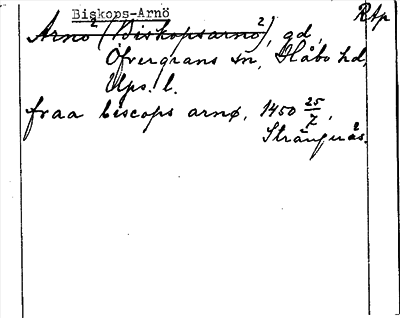 Biskops-Arnö
Rtp
Arnö² (Biskopsarnö²), gd,
Öfvergrans sn, Håbo hd,
Ups. l.
fraa biscops arnø, 1450 25/7,
Strängnäs.